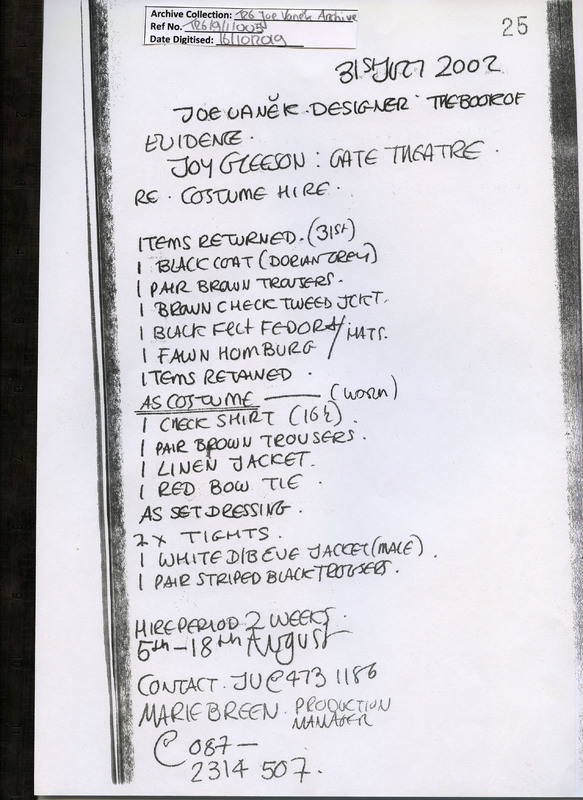 Archive Collection: T26 Joe Vanek Archive
Ref No. T26/9/1/0054
Date Digitised: 16/10/2019
25
31ST JULY 2002
JOE VANĚK. DESIGNER THE BOOK OF
EVIDENCE.
JOY GLEESON: GATE THEATRE.
RE. COSTUME HIRE.
ITEMS RETURNED. (31ST)
1 BLACK COAT (DORIAN GREY)
1 PAIR BROWN TROUSERS.
1 BROWN CHECK TWEED JCKT.
1 BLACK FELT FEDORA / HATS.
1 FAWN HOMBURG
ITEMS RETAINED.
AS COSTUME (WORN)
1 CHECK SHIRT (16½).
1 PAIR BROWN TROUSERS.
1 LINEN JACKET.
1 RED BOW TIE.
AS SET DRESSING.
2 X TIGHTS.
1 WHITE JACKET (MALE).
1 PAIR STRIPED BLACK TROUSERS.
HIRE PERIOD 2 WEEKS.
5th-18th AUGUST
CONTACT. JV @ 473 1186
MARIE BREEN. PRODUCTION
MANAGER
@ 087-
2314 507.